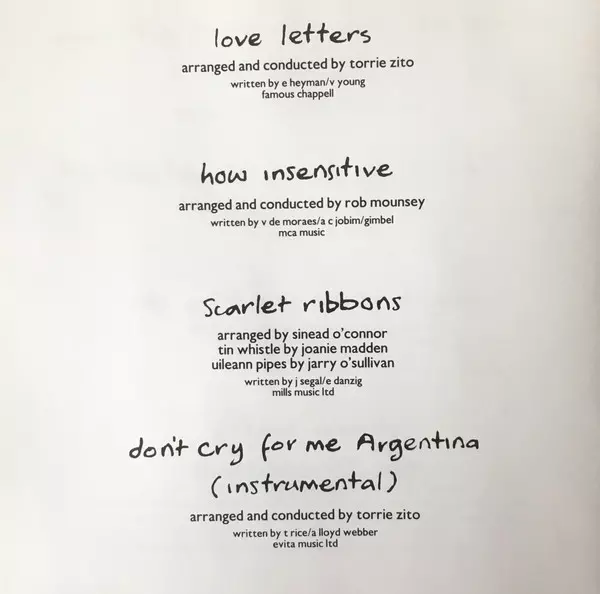 love letters
arranged and conducted by torrie zito
written by e heyman/v young
famous chappell
how insensitive
arranged and conducted by rob mounsey
written by v de moraes/a c jobim/gimbel
mca music
scarlet ribbons
arranged by sinead o'connor
tin whistle by joanie madden
uileann pipes by jarry o'sullivan
written by j segal/e danzig
mills music ltd
don't cry for me Argentina
(instrumental)
arranged and conducted by torrie zito
written by t rice/a lloyd webber
evita music ltd